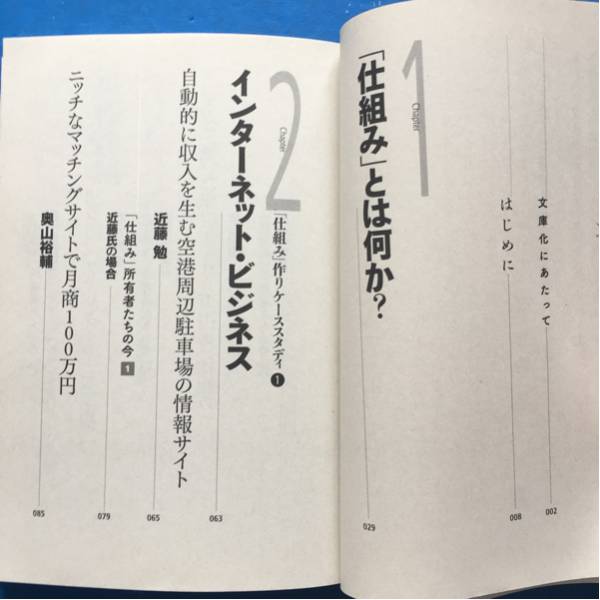 文庫化にあたって
002
はじめに
008
1
Chapter
「仕組み」とは何か?
029
「仕組み」作りケーススタディ❶
2
Chapter
インターネット・ビジネス
063
自動的に収入を生む空港周辺駐車場の情報サイト
近藤 勉
065
「仕組み」所有者たちの今 1
近藤氏の場合
079
ニッチなマッチングサイトで月商100万円
奥山裕輔
085